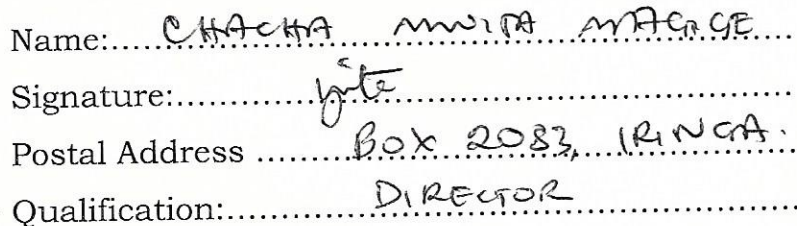 Name:.....CHACHA MWITA MAGIGE....
Signature:..........................
Postal Address ..........BOX 2083, IRINGA.
Qualification:..............DIRECTOR..................